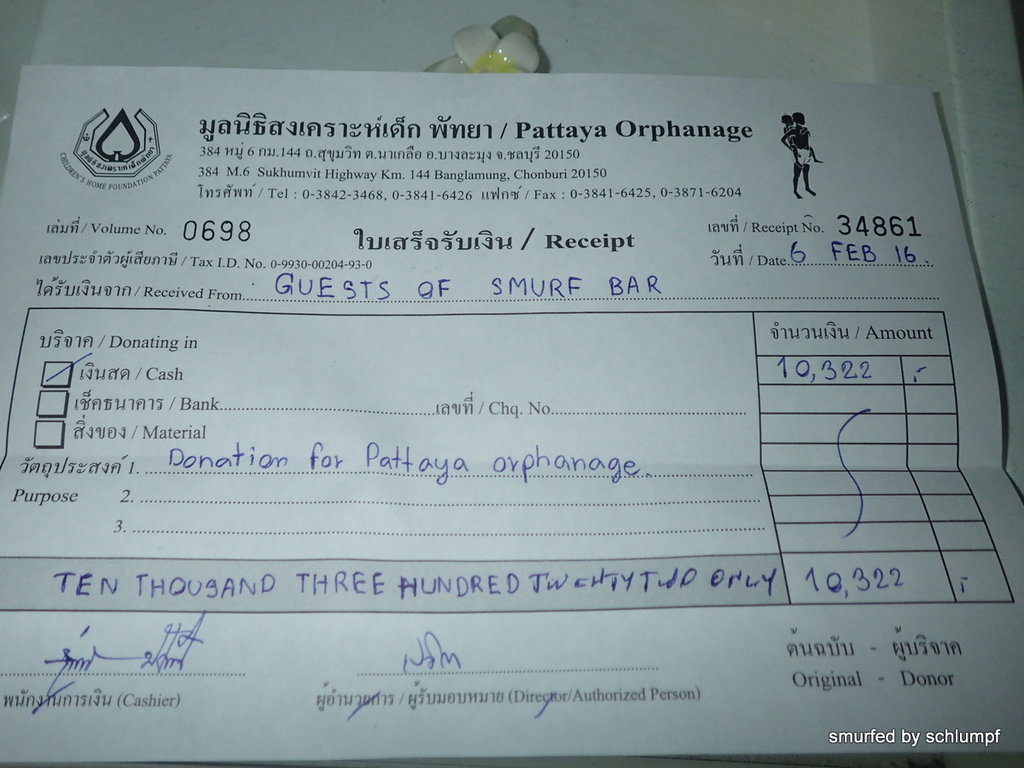 มูลนิธิสงเคราะห์เด็ก พัทยา / Pattaya Orphanage
384 หมู่ 6 กม.144 ถ.สุขุมวิท ต.นาเกลือ อ.บางละมุง จ.ชลบุรี 20150
384 M.6 Sukhumvit Highway Km. 144 Banglamung, Chonburi 20150
โทรศัพท์ / Tel : 0-3842-3468, 0-3841-6426 แฟกซ์ / Fax : 0-3841-6425, 0-3871-6204
CHILDREN'S HOME FOUNDATION PATTAYA
เล่มที่ / Volume No. 0698
ใบเสร็จรับเงิน / Receipt
เลขที่ / Receipt No. 34861
เลขประจำตัวผู้เสียภาษี / Tax I.D. No. 0-9930-00204-93-0
วันที่ / Date 6 FEB 16.
ได้รับเงินจาก / Received From GUESTS OF SMURF BAR
บริจาค / Donating in
จำนวนเงิน / Amount
เงินสด / Cash
10,322 .-
เช็คธนาคาร / Bank เลขที่ / Chq. No.
สิ่งของ / Material
วัตถุประสงค์ 1. Donation for Pattaya orphanage.
Purpose 2.
3.
TEN THOUSAND THREE HUNDRED TWENTY TWO ONLY 10,322 .-
ต้นฉบับ - ผู้บริจาค
Original - Donor
พนักงานการเงิน (Cashier)
ผู้อำนวยการ / ผู้รับมอบหมาย (Director/Authorized Person)
smurfed by schlumpf